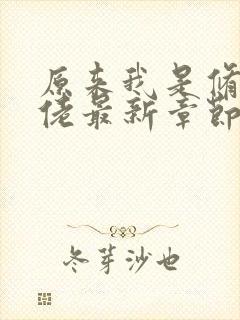 原来我是修
佬最新章节
冬芽沙也